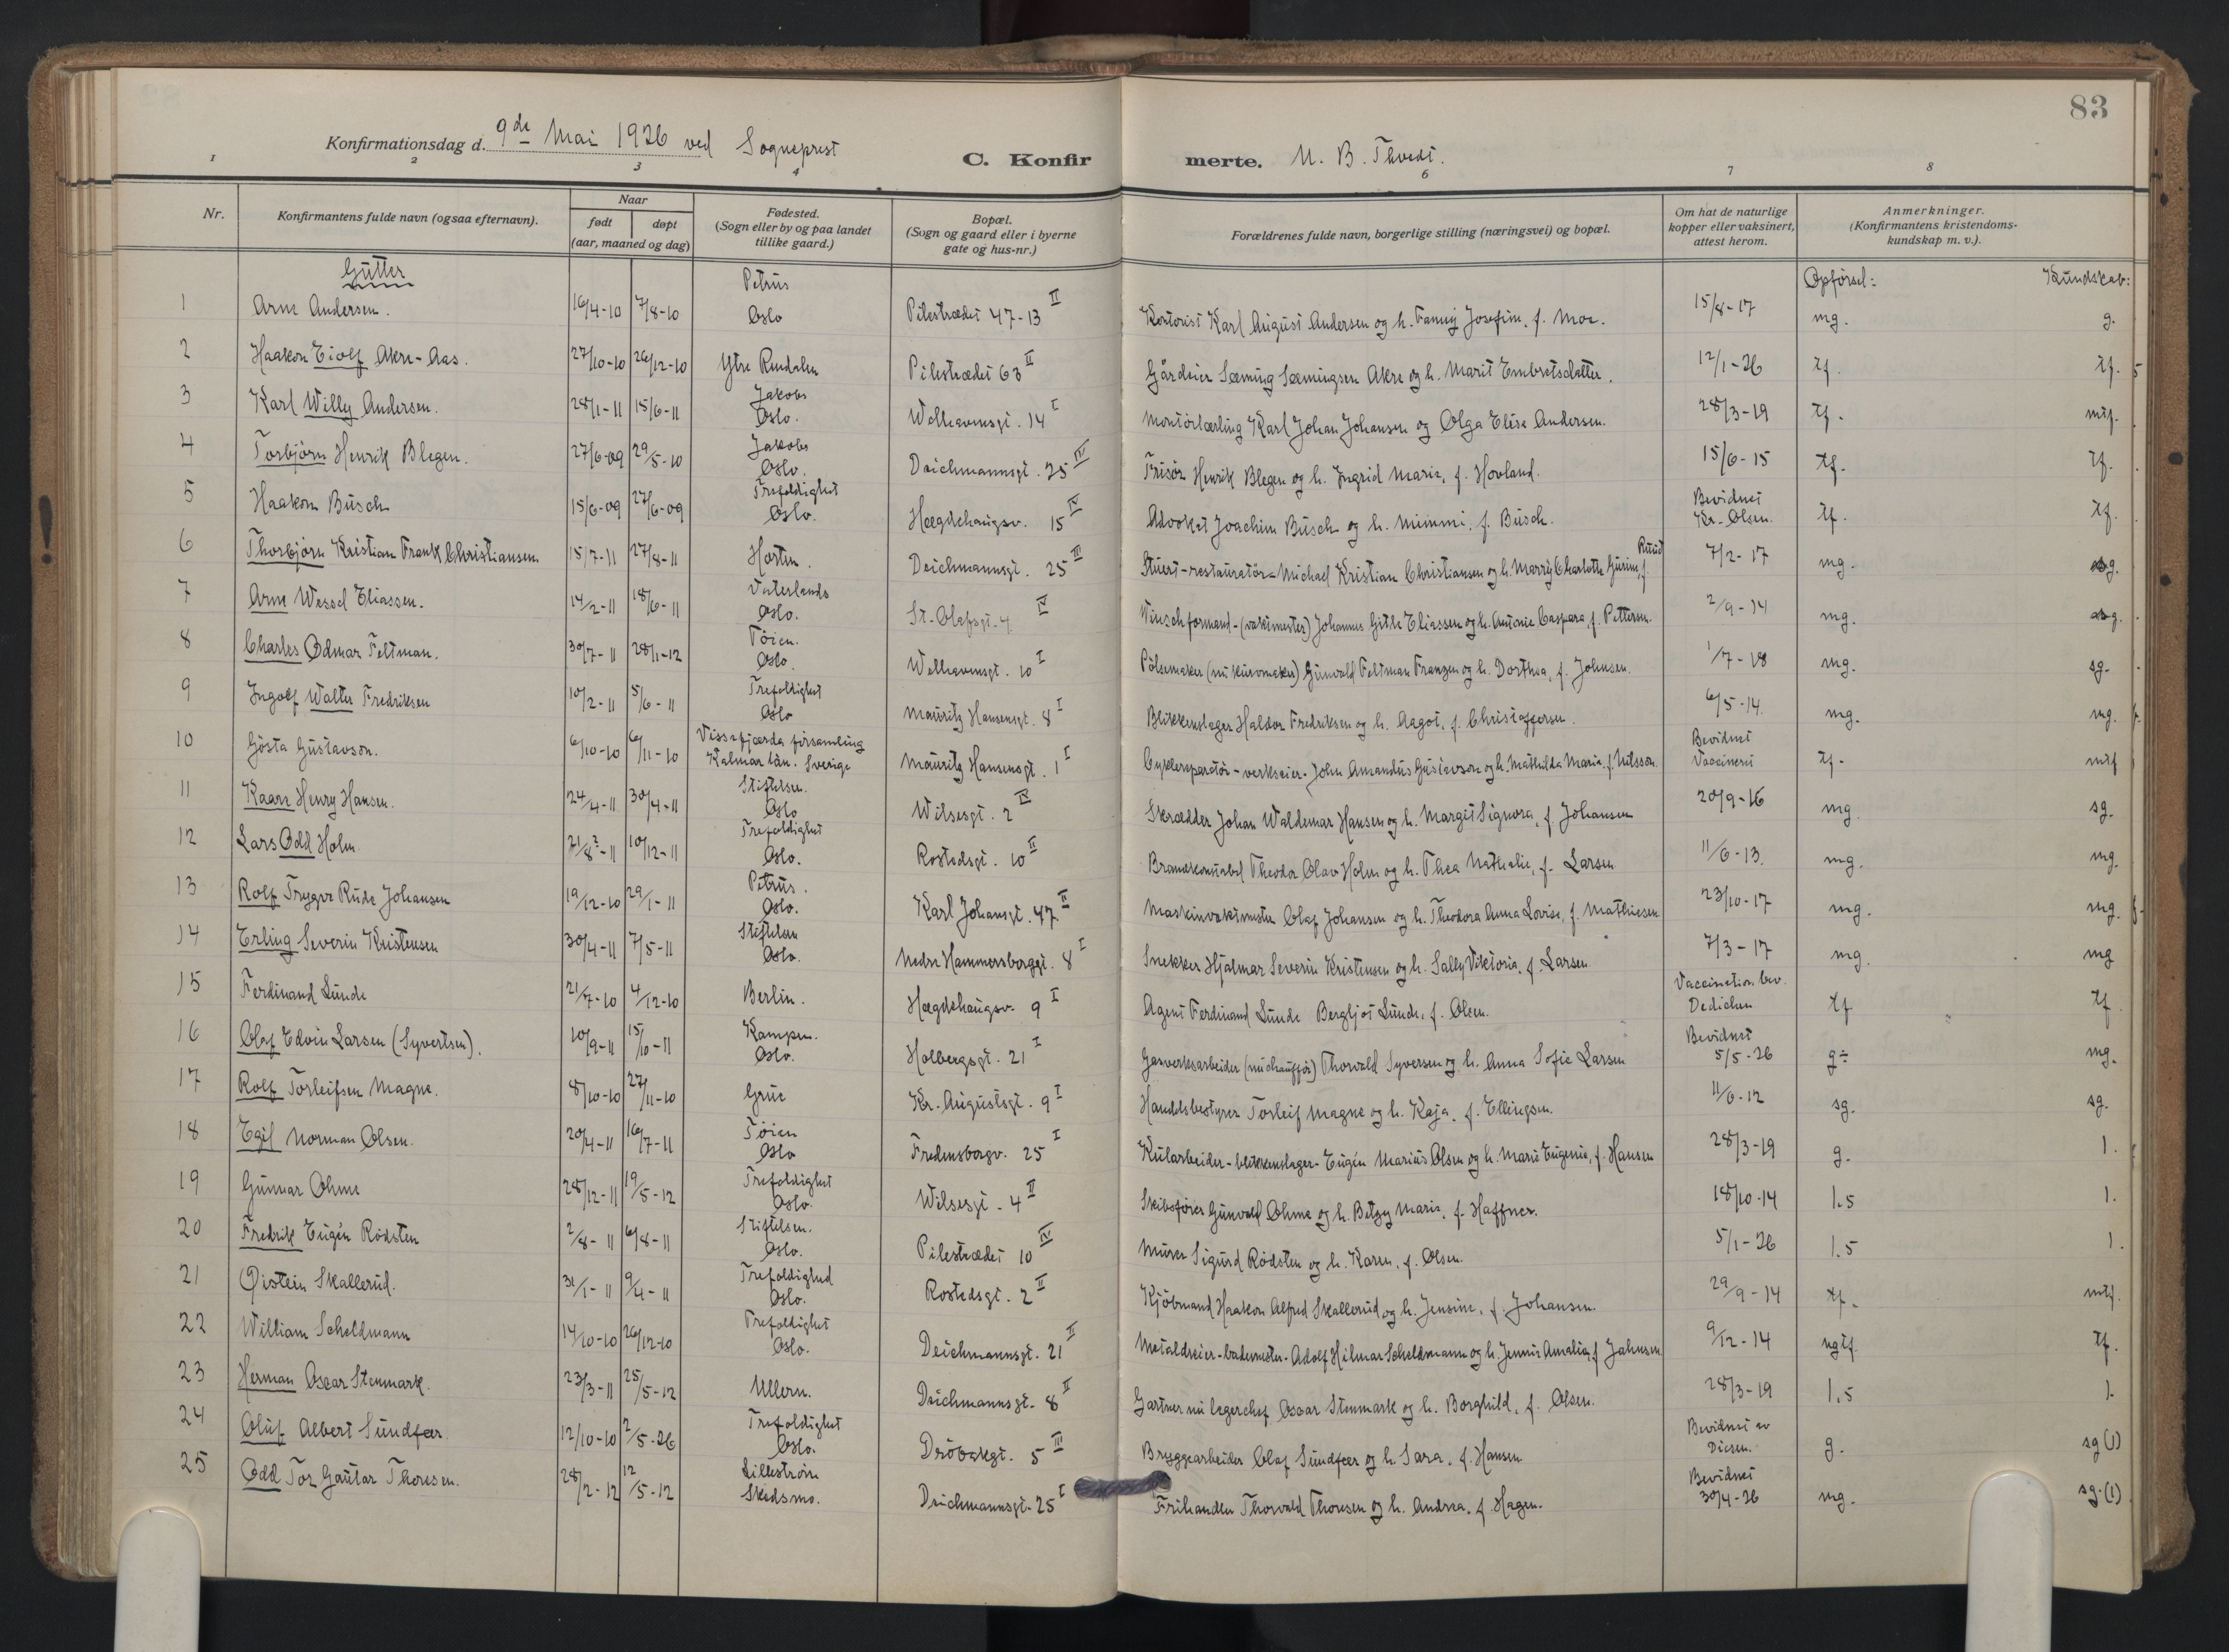 83
Konfirmationsdag d. 9de Mai 1926 ved Sogneprest
C. Konfirmerte. N. B. Thvedt.
1 2 3 4 6 7 8
Nr. | Konfirmantens fulde navn (ogsaa efternavn). | Naar født døpt (aar, maaned og dag) | Fødested. (Sogn eller by og paa landet tillike gaard.) | Bopæl. (Sogn og gaard eller i byerne gate og hus-nr.) | Forældrenes fulde navn, borgerlige stilling (næringsvei) og bopæl. | Om hat de naturlige kopper eller vaksinert, attest herom. | Anmerkninger. (Konfirmantens kristendomskundskap m. v.).
Gutter | Opførsel: | Kundskab:
1 Arne Andersen. 16/4-10 7/8-10 Petrus Oslo Pilestrædet 47-13 II Kontorist Karl August Andersen og h. Fanny Josefine, f. Moe. 15/8-17 mg. g.
2 Haakon Eiolf Akre-Aas. 27/10-10 26/12-10 Ytre Rendalen Pilestrædet 63 II Gårdeier Sæming Sæmingsen Akre og h. Marit Embretsdatter. 12/1-26 tf. tf. 5
3 Karl Willy Andersen. 28/1-11 15/6-11 Jakobs Oslo. Welhavensgt. 14 I Montörlærling Karl Johan Johansen og Olga Elise Andersen. 28/3-19 tf. mtf.
4 Torbjörn Henrik Blegen. 27/6-09 29/5-10 Jakobs Oslo. Deichmannsgt. 25 IV Frisör Henrik Blegen og h. Ingrid Marie, f. Hovland. 15/6-15 tf. tf.
5 Haakon Busch 15/6-09 27/6-09 Trefoldighet Oslo. Hægdehaugsv. 15 IV Advokat Joachim Busch og h. Mimmi, f. Busch. Bevidnet Kr. Olsen. tf. tf.
6 Thorbjörn Kristian Frank Christiansen 15/7-11 27/8-11 Horten. Deichmannsgt. 25 III Stuert-restauratör- Michael Kristian Christiansen og h. Marry Charlotte Gurine, f. Ruud 7/2-17 mg. sg.
7 Arne Wessel Eliassen. 14/2-11 18/6-11 Vaterlands Oslo. St. Olafsgt. 4 IV Vinschformand-(vaktmester) Johannes Githe Eliassen og h. Antonie Caspara, f. Pettersen. 2/9-14 mg. sg.
8 Charles Odmar Feltman. 30/7-11 28/1-12 Töien. Oslo. Welhavensgt. 10 I Pölsemaker (nu kurvmaker) Gunvald Feltman Franzen og h. Dorthea, f. Johnsen. 1/7-18 mg. sg.
9 Ingolf Walter Fredriksen 10/2-11 5/6-11 Trefoldighet Oslo Mauritz Hansensgt. 8 I Blikkenslager Haldor Fredriksen og h. Aagot, f. Christoffersen. 6/5-14. mg. mg.
10 Gösta Gustavson. 6/10-10 6/11-10 Vissefjærda församling Kalmar län. Sverige Mauritz Hansensgt. 1 I Cyklereparatör-verkseier- John Amandus Gustavson og h. Mathilda Maria, f. Nilsson. Bevidnet Vaccinert tf. mtf
11 Kaare Henry Hansen. 24/4-11 30/4-11 Stiftelsen. Oslo Wilsesgt. 2 IV Skrædder Johan Waldemar Hansen og h. Margit Signora, f. Johansen 20/9-16 mg sg.
12 Lars Odd Holm. 21/8?-11 10/12-11 Trefoldighet Oslo. Rostedsgt. 10 II Brandkonstabel Theodor Olav Holm og h. Thea Nathalie, f. Larsen 11/6-13. mg. mg.
13 Rolf Trygve Rude Johansen 19/12-10 29/1-11 Petrus. Oslo. Karl Johansgt. 47 II Maskinvaktmester Olaf Johansen og h. Theodora Anna Lovise, f. Mathiesen 23/10-17 mg. mg.
14 Erling Severin Kristensen 30/4-11 7/5-11 Stiftelsen Oslo. Nedre Hammersborggt. 8 I Snekker Hjalmar Severin Kristensen og h. Sally Viktoria, f. Larsen 7/3-17 mg. mg
15 Ferdinand Lunde 21/7-10 4/12-10 Berlin. Hægdehaugsv. 9 I Agent Ferdinand Lunde Bergljot Lunde, f. Olsen. Vaccination bev. Dedichen tf tf
16 Olaf Edvin Larsen (Syvertsen). 10/9-11 15/10-11 Kampen. Oslo. Holbergsgt. 21 I Gasverksarbeider (nu chaufför) Thorvald Syversen og h. Anna Sofie Larsen Bevidnet 5/5-26 g÷ mg.
17 Rolf Torleifsen Magne. 8/10-10 27/11-10 Grue Kr. Augustsgt. 9 I Handelsbestyrer Torleif Magne og h. Kaja, f. Ellingsen. 11/6-12 sg. sg.
18 Egil Norman Olsen. 20/4-11 16/7-11 Töien Oslo Fredensborgv. 25 I Kularbeider-blikkenslager- Eugén Marius Olsen og h. Marie Eugenie, f. Hansen 28/3-19 g. 1.
19 Gunnar Ohme 28/12-11 19/5-12 Trefoldighet Oslo. Wilsesgt. 4 II Skibsförer Gunvald Ohme og h. Betzy Marie, f. Haffner. 18/10-14 1.5 1.
20 Fredrik Eugén Rödsten 2/8-11 6/8-11 Stiftelsen. Oslo. Pilestrædet 10 IV Murer Sigurd Rödsten og h. Karen, f. Olsen. 5/1-26 1.5 1.
21 Øistein Skallerud. 31/1-11 9/4-11 Trefoldighed Oslo. Rostedsgt. 2 II Kjöbmand Haakon Alfred Skallerud og h. Jensine, f. Johansen. 29/9-14 tf. mtf.
22 William Scheldmann 14/10-10 26/12-10 Trefoldighet Oslo. Deichmannsgt. 21 II Metaldreier-bademester- Adolf Hilmar Scheldmann og h. Jennie Amalia, f. Jahnsen 9/12-14 ngtf. tf.
23 Herman Oscar Stenmark. 23/3-11 25/5-12 Ullern. Deichmannsgt. 8 II Gartner nu lagerchef Oscar Stenmark og h. Borghild, f. Olsen. 28/3-19 1.5 1.
24 Oluf Albert Sundfær. 12/10-10 2/5-26 Trefoldighet Oslo. Dröbakgt. 5 III Bryggearbeider Olaf Sundfær og h. Sara, f. Hansen Bevidnet av Diesen. g. sg (1)
25 Odd Tor Gautar Thoresen. 28/2-12 12/5-12 Lilleström Skedsmo. Deichmannsgt. 25 I Frihandler Thorvald Thoresen og h. Andrea, f. Hagen. Bevidnet 30/4-26 mg. sg. (1)